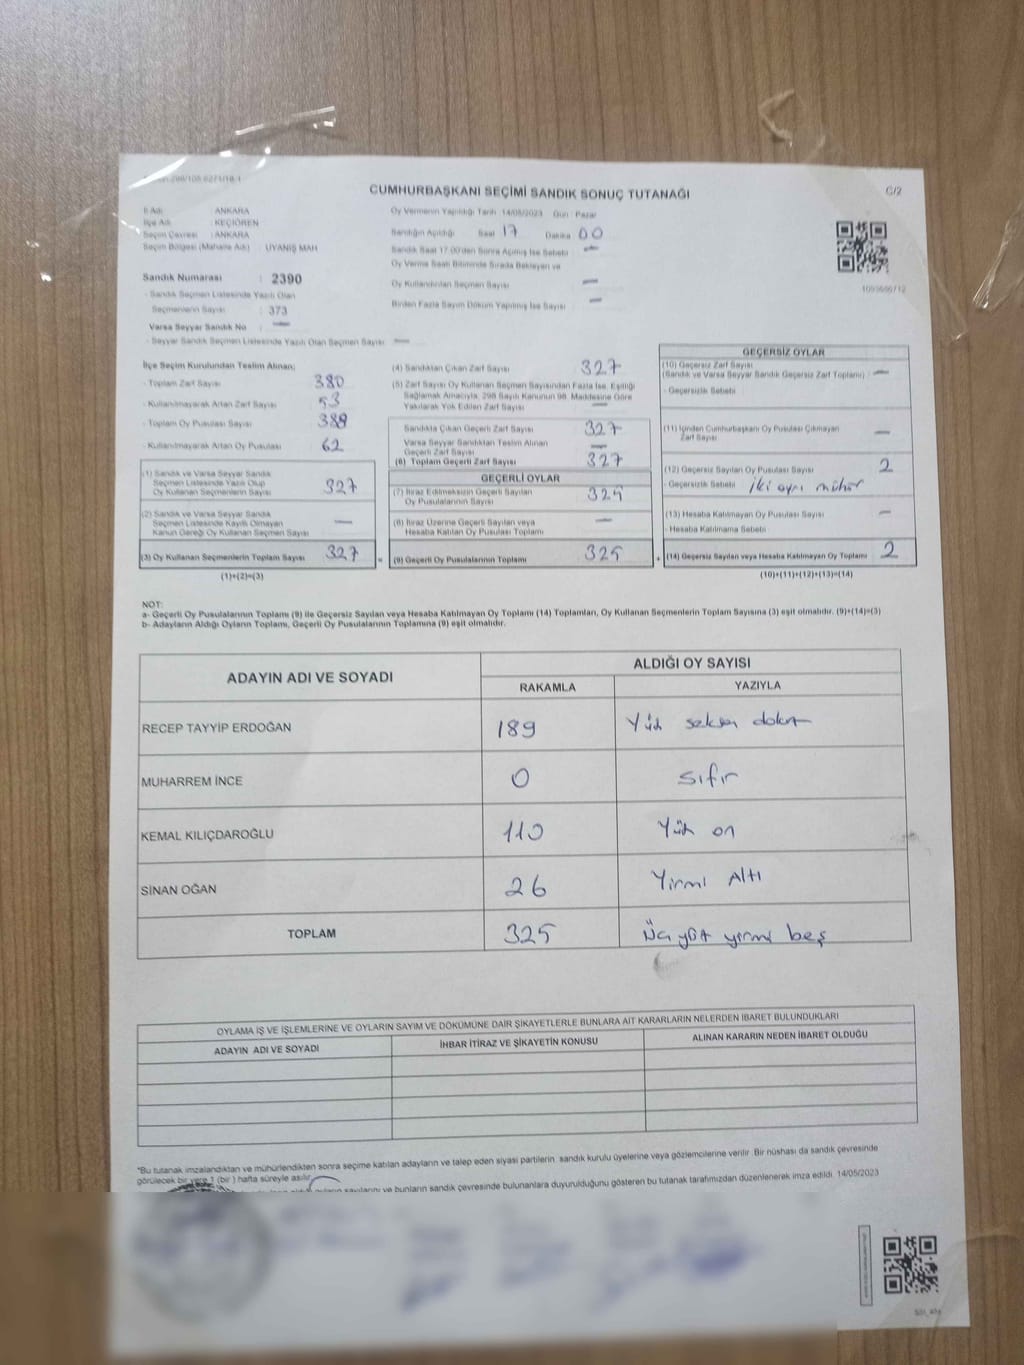 CUMHURBAŞKANI SEÇİMİ SANDIK SONUÇ TUTANAĞI
C/2
İl Adı : ANKARA
İlçe Adı : KEÇİÖREN
Seçim Çevresi : ANKARA
Seçim Bölgesi (Mahalle Adı) : UYANIŞ MAH
Sandık Numarası : 2390
- Sandık Seçmen Listesinde Yazılı Olan
Seçmenlerin Sayısı : 373
Varsa Seyyar Sandık No : —
- Seyyar Sandık Seçmen Listesinde Yazılı Olan Seçmen Sayısı : —
Oy Vermenin Yapıldığı Tarih : 14/05/2023 Gün : Pazar
Sandığın Açıldığı Saat 17 Dakika 00
Sandık Saat 17.00'den Sonra Açılmış İse Sebebi : —
Oy Verme Saati Bitiminde Sırada Bekleyen ve
Oy Kullandırılan Seçmen Sayısı : —
Birden Fazla Sayım Döküm Yapılmış İse Sayısı : —
İlçe Seçim Kurulundan Teslim Alınan;
- Toplam Zarf Sayısı 380
- Kullanılmayarak Artan Zarf Sayısı 53
- Toplam Oy Pusulası Sayısı 388
- Kullanılmayarak Artan Oy Pusulası 62
(1) Sandık ve Varsa Seyyar Sandık
Seçmen Listesinde Yazılı Olup
Oy Kullanan Seçmenlerin Sayısı 327
(2) Sandık ve Varsa Seyyar Sandık
Seçmen Listesinde Kayıtlı Olmayan
Kanun Gereği Oy Kullanan Seçmen Sayısı —
(3) Oy Kullanan Seçmenlerin Toplam Sayısı 327
(1)+(2)=(3)
(4) Sandıktan Çıkan Zarf Sayısı 327
(5) Zarf Sayısı Oy Kullanan Seçmen Sayısından Fazla İse, Eşitliği
Sağlamak Amacıyla, 298 Sayılı Kanunun 98. Maddesine Göre
Yakılarak Yok Edilen Zarf Sayısı —
Sandıkta Çıkan Geçerli Zarf Sayısı 327
Varsa Seyyar Sandıktan Teslim Alınan
Geçerli Zarf Sayısı —
(6) Toplam Geçerli Zarf Sayısı 327
GEÇERLİ OYLAR
(7) İtiraz Edilmeksizin Geçerli Sayılan
Oy Pusulalarının Sayısı 325
(8) İtiraz Üzerine Geçerli Sayılan veya
Hesaba Katılan Oy Pusulası Toplamı —
(9) Geçerli Oy Pusulalarının Toplamı 325
GEÇERSİZ OYLAR
(10) Geçersiz Zarf Sayısı
(Sandık ve Varsa Seyyar Sandık Geçersiz Zarf Toplamı) : —
- Geçersizlik Sebebi
(11) İçinden Cumhurbaşkanı Oy Pusulası Çıkmayan
Zarf Sayısı —
(12) Geçersiz Sayılan Oy Pusulası Sayısı 2
- Geçersizlik Sebebi İki ayrı mühür
(13) Hesaba Katılmayan Oy Pusulası Sayısı —
- Hesaba Katılmama Sebebi
(14) Geçersiz Sayılan veya Hesaba Katılmayan Oy Toplamı 2
(10)+(11)+(12)+(13)=(14)
NOT:
a- Geçerli Oy Pusulalarının Toplamı (9) ile Geçersiz Sayılan veya Hesaba Katılmayan Oy Toplamı (14) Toplamları, Oy Kullanan Seçmenlerin Toplam Sayısına (3) eşit olmalıdır. (9)+(14)=(3)
b- Adayların Aldığı Oyların Toplamı, Geçerli Oy Pusulalarının Toplamına (9) eşit olmalıdır.
ADAYIN ADI VE SOYADI
ALDIĞI OY SAYISI
RAKAMLA YAZIYLA
RECEP TAYYİP ERDOĞAN 189 Yüz seksen dokuz
MUHARREM İNCE 0 sıfır
KEMAL KILIÇDAROĞLU 110 Yüz on
SİNAN OĞAN 26 Yirmi Altı
TOPLAM 325 Üç yüz yirmi beş
OYLAMA İŞ VE İŞLEMLERİNE VE OYLARIN SAYIM VE DÖKÜMÜNE DAİR ŞİKAYETLERLE BUNLARA AİT KARARLARIN NELERDEN İBARET BULUNDUKLARI
ADAYIN ADI VE SOYADI İHBAR İTİRAZ VE ŞİKAYETİN KONUSU ALINAN KARARIN NEDEN İBARET OLDUĞU
*Bu tutanak imzalandıktan ve mühürlendikten sonra seçime katılan adayların ve talep eden siyasi partilerin, sandık kurulu üyelerine veya gözlemcilerine verilir. Bir nüshası da sandık çevresinde
görülecek bir yere 1 (bir) hafta süreyle asılır.
oyların sayılarını ve bunların sandık çevresinde bulunanlara duyurulduğunu gösteren bu tutanak tarafımızdan düzenlenerek imza edildi. 14/05/2023